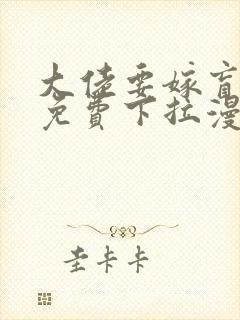 大佬要嫁盲
免費下拉漫
圭卡卡